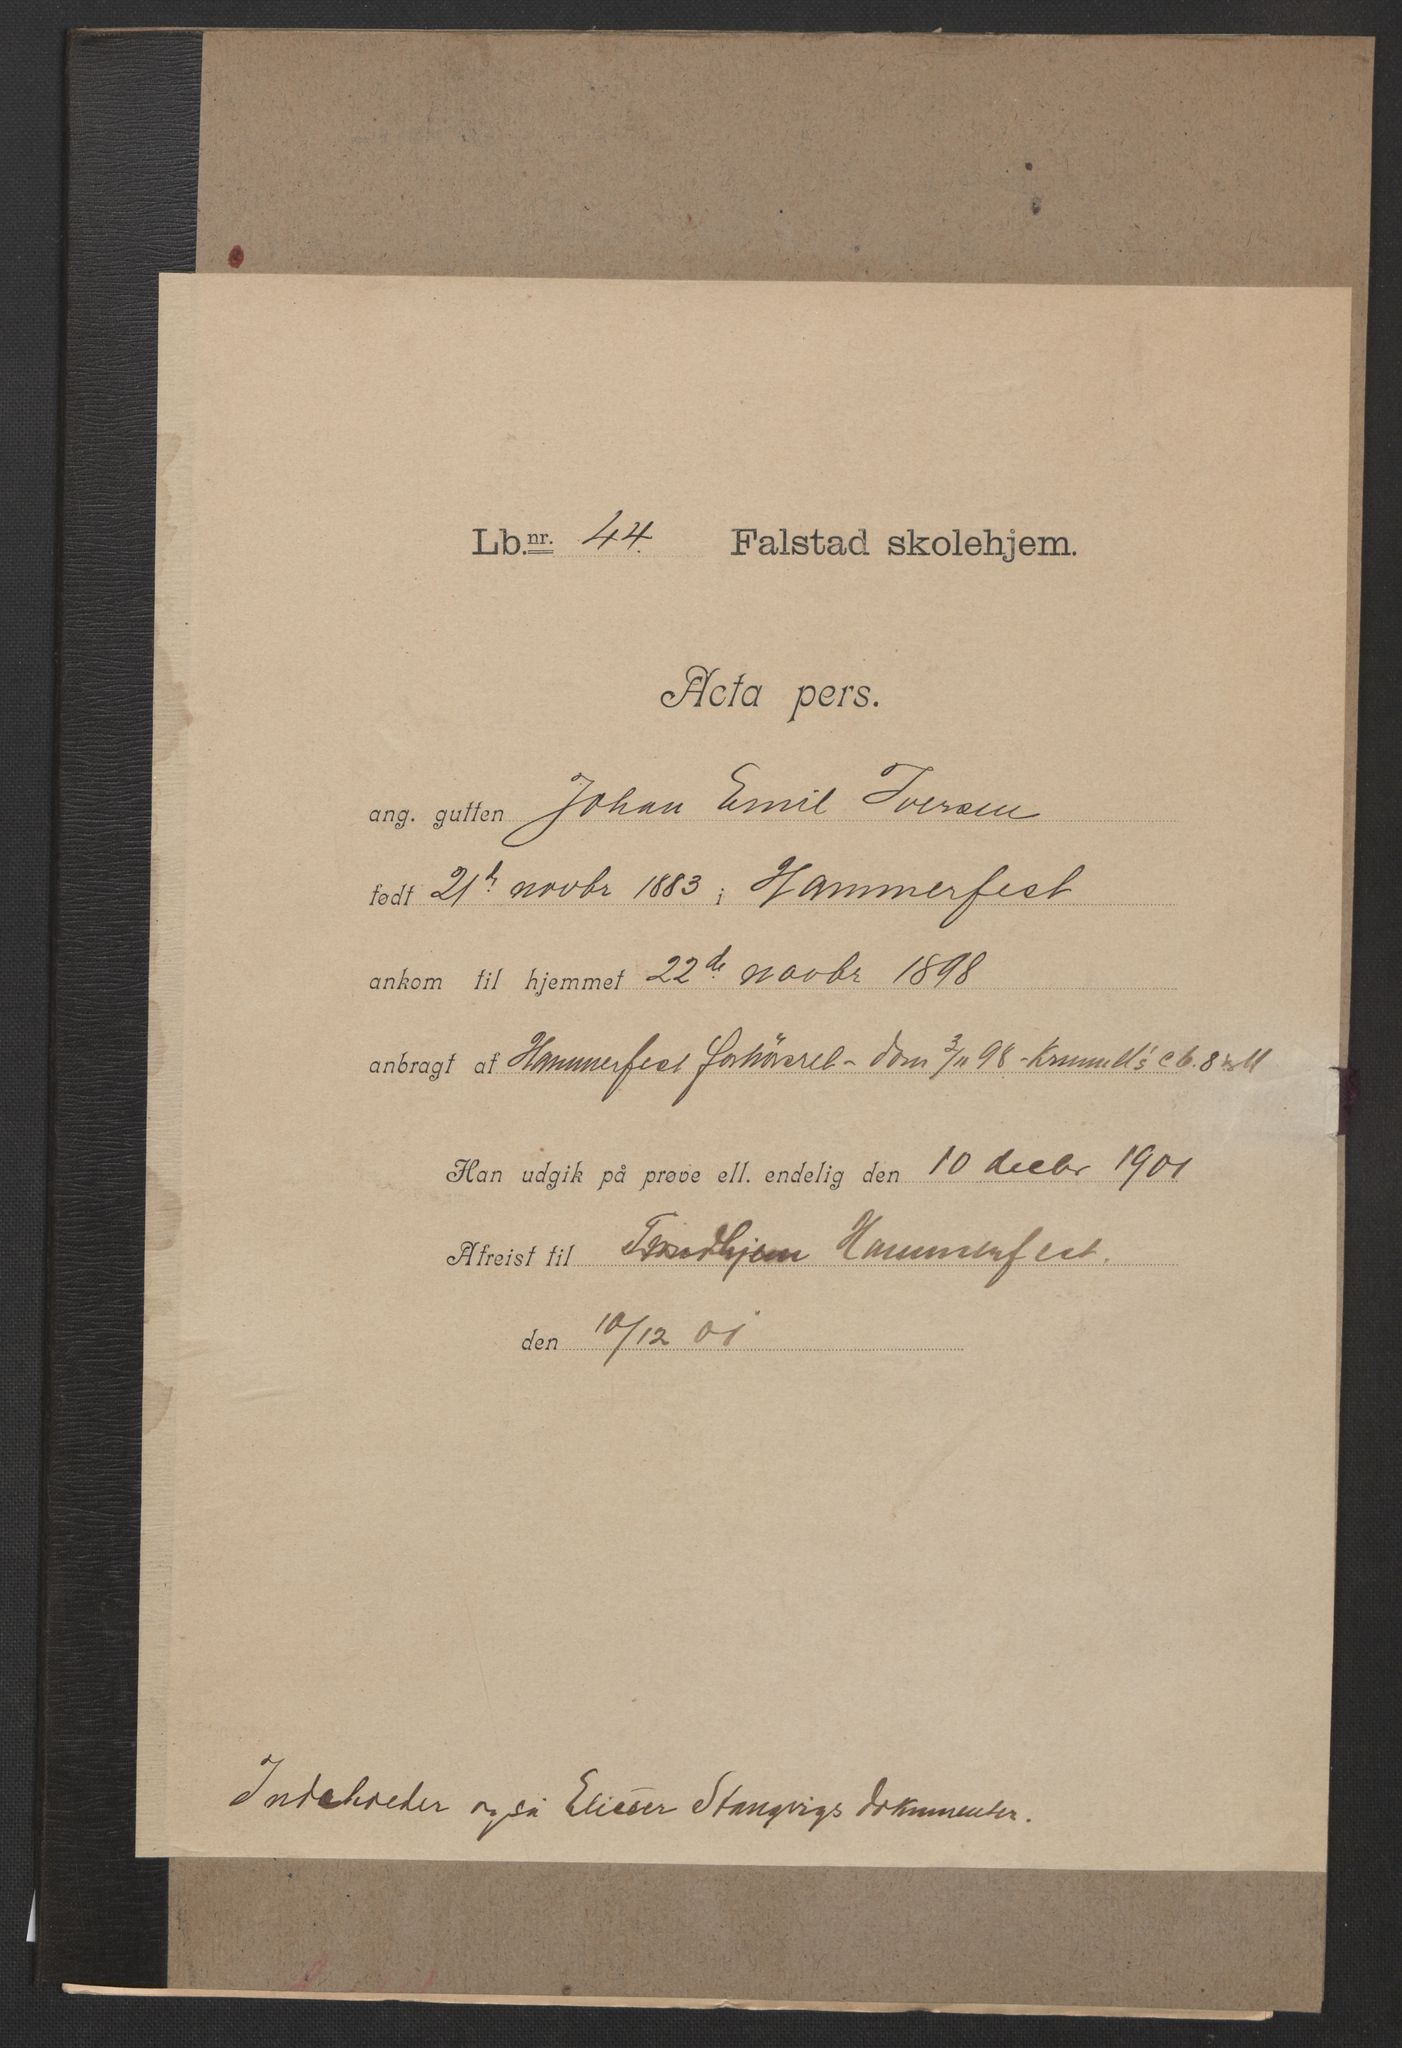 Lb.nr. 44. Falstad skolehjem.
Acta pers.
ang. gutten Johan Emil Iversen
født 21de novbr 1883 i Hammerfest
ankom til hjemmet 22de novbr 1898
anbragt af Hammerfest forhörsret - dom 3/11 98 -
Han udgik på prøve ell. endelig den 10 decbr 1901
Afreist til Trondhjem Hammerfest.
den 10/12 01
Indeholder også Elieser Stangvigs dokumenter.